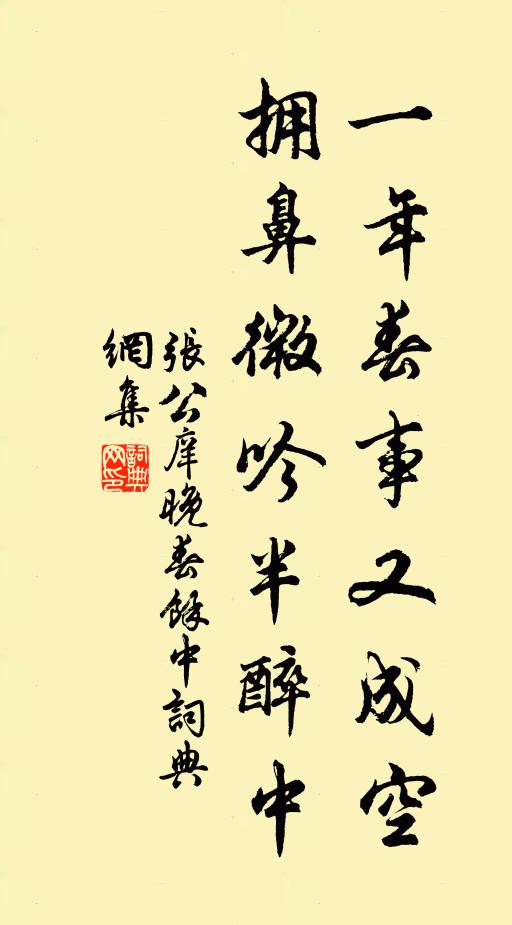 一年春事又成空
拥鼻微吟半醉中
張公庠晚春餘中詞典
網集
詞典网印